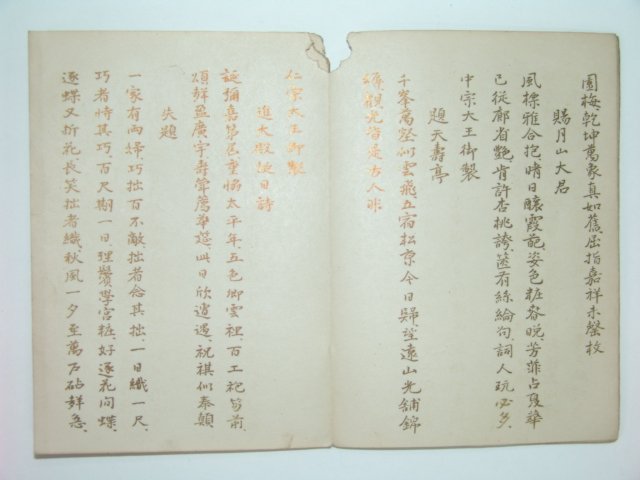 園梅乾坤萬象真如舊屈指嘉祥未罄枚
賜月山大君
風標雅合抱晴日暖霞蒀姿色粧春晚芳菲占夏華
已從廊省艶肯許杏桃誇篋有絲綸句詞人玩必多
中宗大王御製
題天壽亭
千峯萬壑似雲飛五宿松京今日歸望遠山光舖錦
繡觀光皆是古人非
仁宗大王御製
進大殿延日詩
誕彌嘉節屆重惱太平年五色卿雲裡百工祀筍前
頌鮮盈廣宇壽舉荐華筵此日欣遭遇祝祺似泰顛
失題
一家有両婦巧拙百不敵拙者念其拙一日織一尺
巧者恃其巧百尺期一日理鬢學宮粧好逐花间蝶
逐蝶又折花長笑拙者織秋風一夕至萬户砧聲急